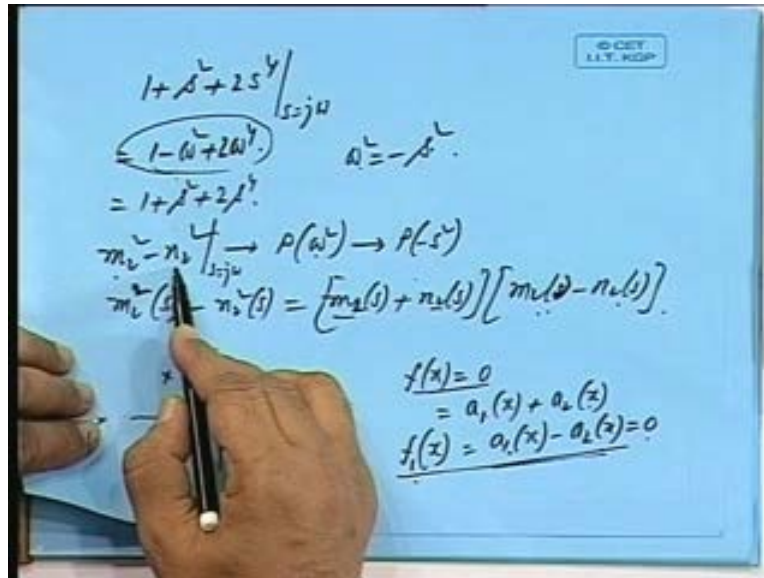 © CET
I.I.T. KGP
1 + s² + 2s⁴ |s=jω
= 1 - ω² + 2ω⁴. ω² = -s².
= 1 + s² + 2s⁴.
m₂² - n₂² |s=jω → P(ω²) → P(-s²)
m₂²(s) - n₂²(s) = [m₂(s) + n₂(s)][m₂(s) - n₂(s)].
f(x) = 0
= a₁(x) + a₂(x)
f₁(x) = a₁(x) - a₂(x) = 0